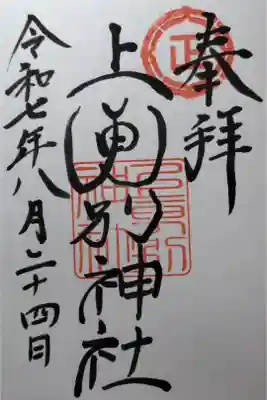 奉拝
上更別神社
令和七年八月二十四日